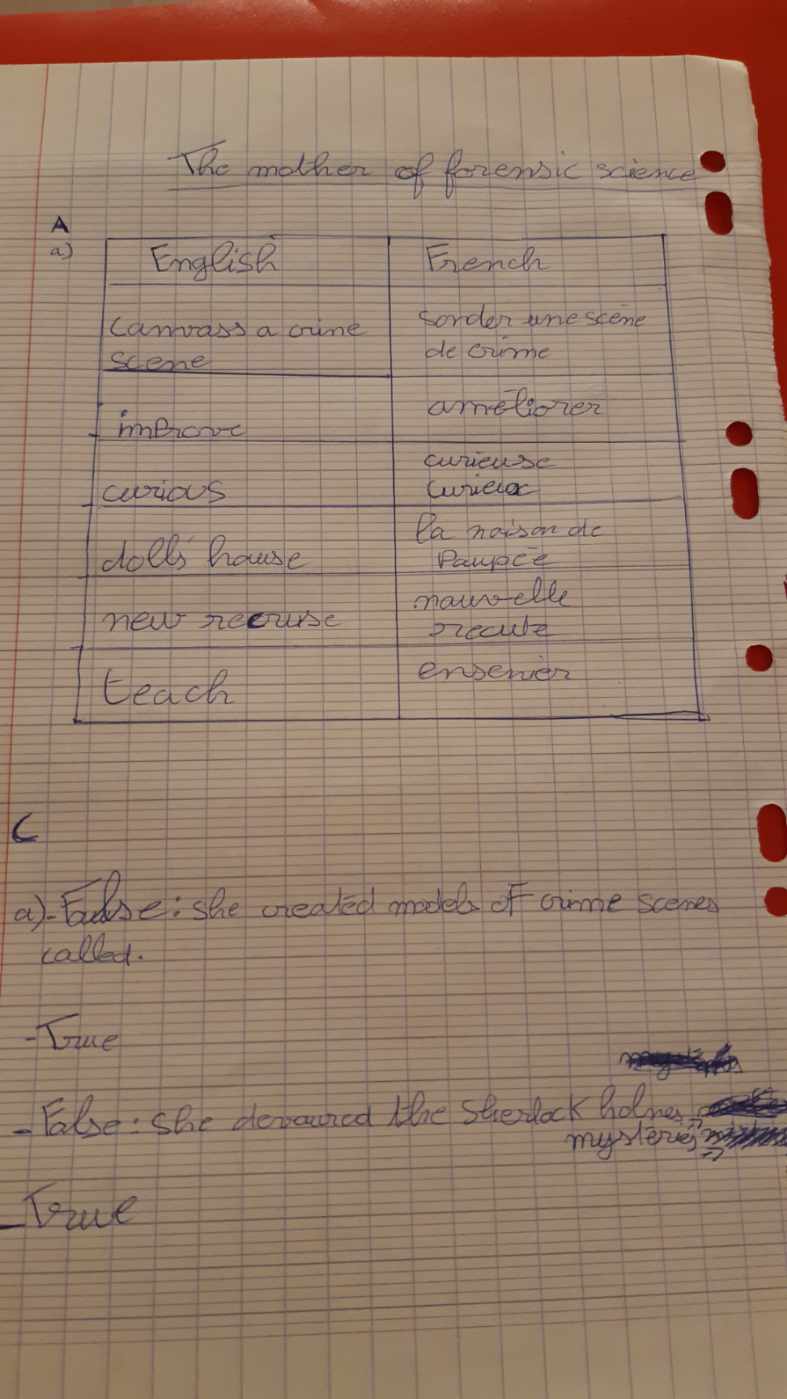 The mother of forensic science
A
a)
English
French
canvass a crime
scene
sonder une scène
de crime
improve
améliorer
curious
curieuse
curieux
dolls house
la maison de
Paupée
new recruse
nouvelle
recute
teach
ensenier
C
a)-False: she created models of crime scenes
called.
-True
-False: she devoured the Sherlock holmes
mysteries
-True